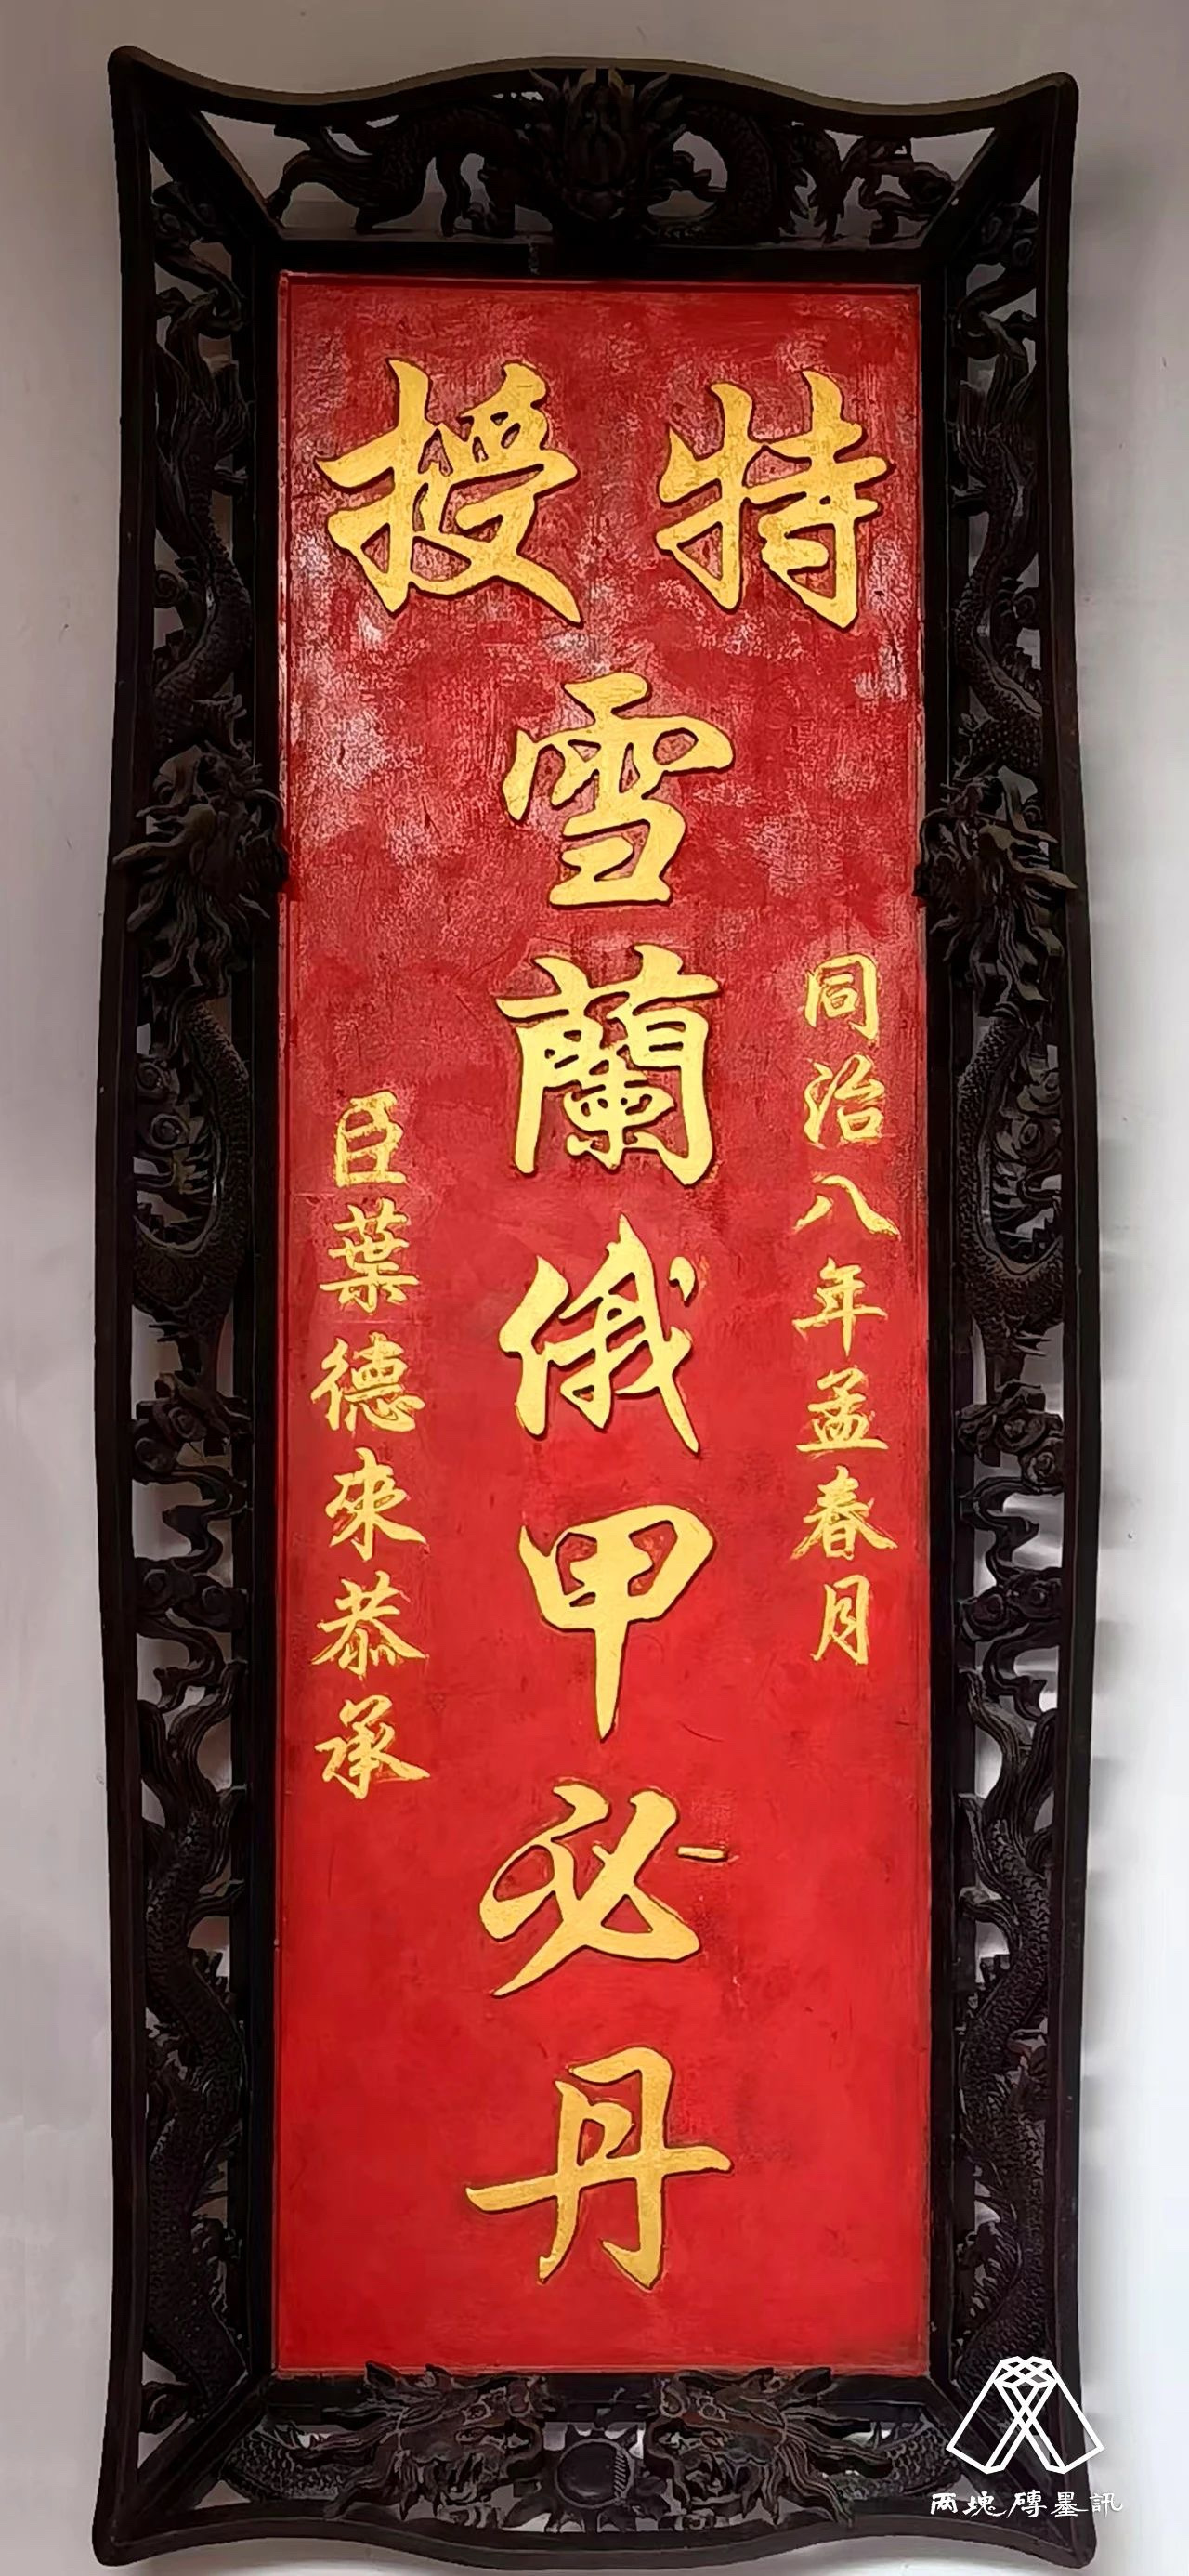 特授
同治八年孟春月
雪蘭俄甲必丹
臣葉德來恭承
两塊磚墨訊